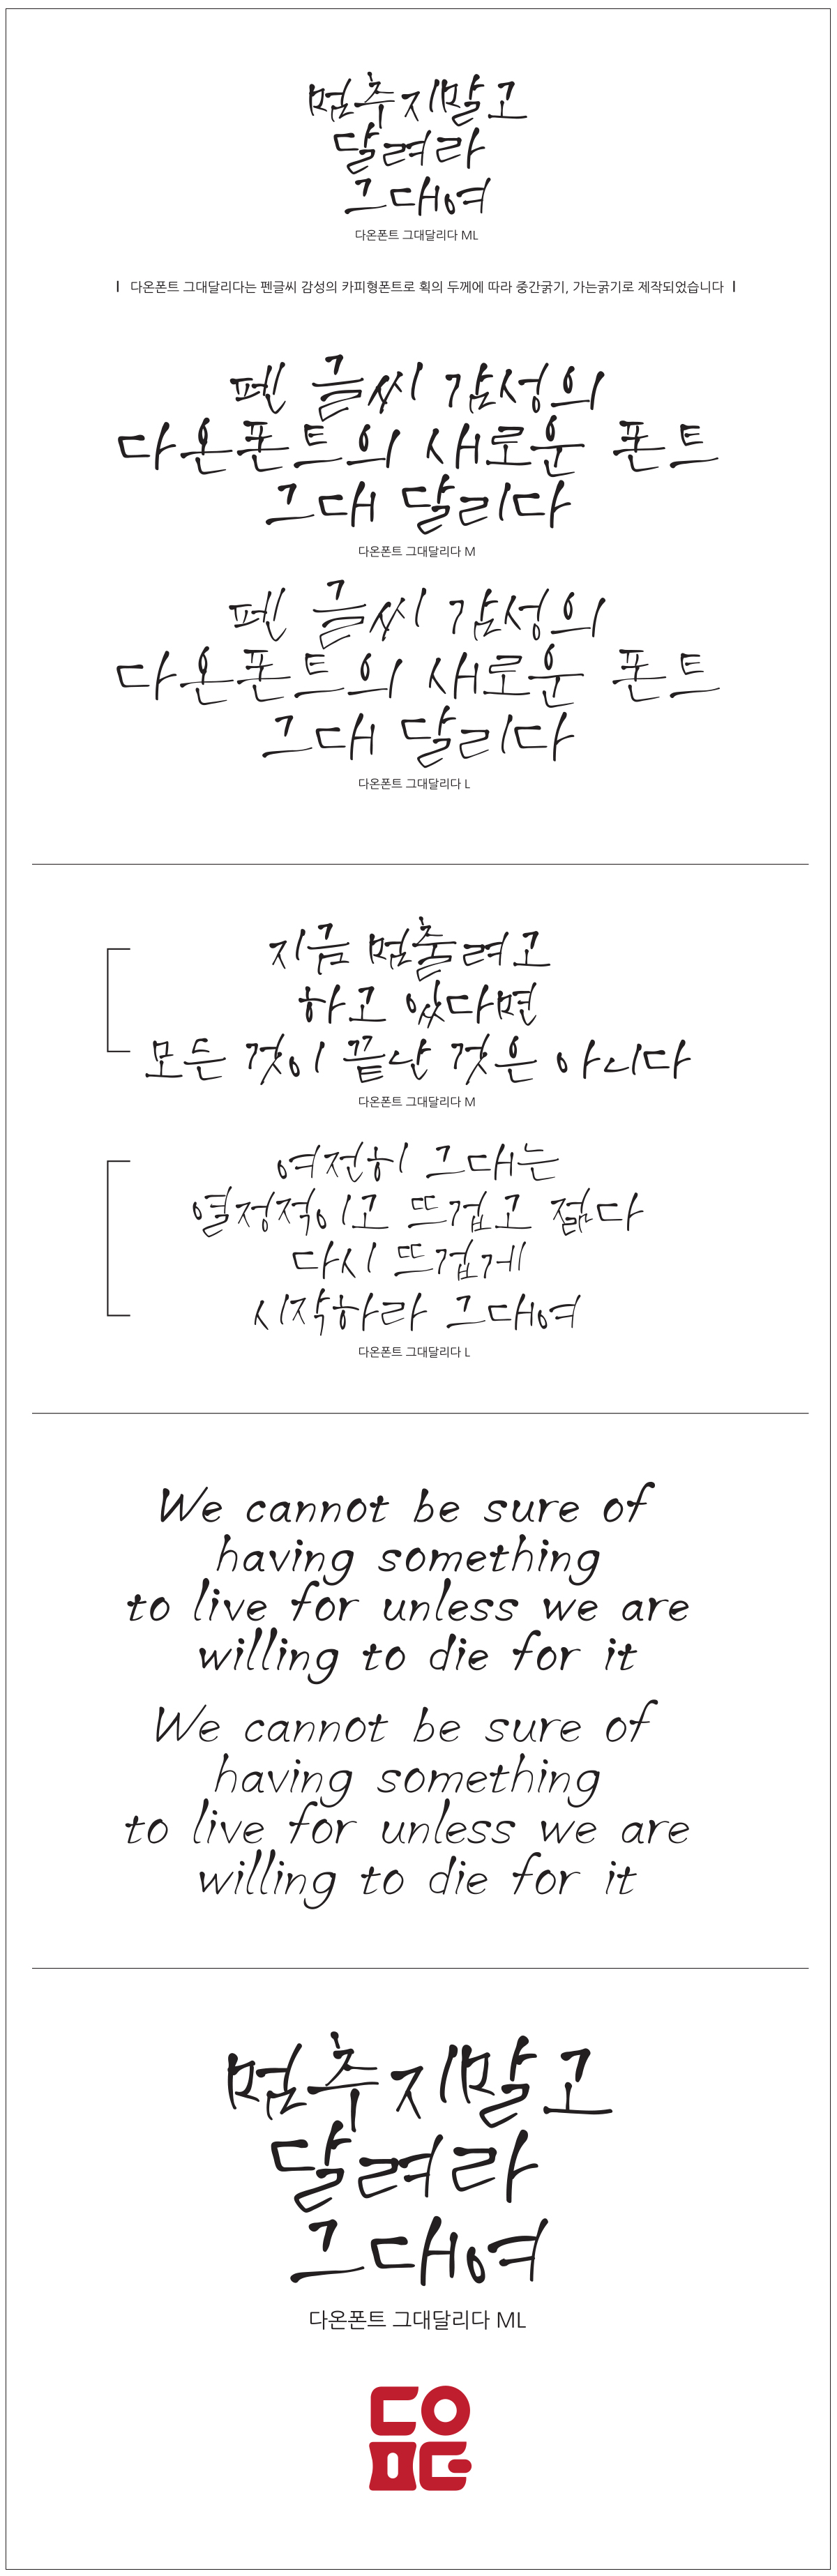 멈추지말고
달려라
그대여
다온폰트 그대달리다 ML
다온폰트 그대달리다는 펜글씨 감성의 카피형폰트로 획의 두께에 따라 중간굵기, 가는굵기로 제작되었습니다
펜 글씨 감성의
다온폰트의 새로운 폰트
그대 달리다
다온폰트 그대달리다 M
펜 글씨 감성의
다온폰트의 새로운 폰트
그대 달리다
다온폰트 그대달리다 L
지금 멈출려고
하고 있다면
모든 것이 끝난 것은 아니다
다온폰트 그대달리다 M
여전히 그대는
열정적이고 뜨겁고 젊다
다시 뜨겁게
시작하라 그대여
다온폰트 그대달리다 L
We cannot be sure of
having something
to live for unless we are
willing to die for it
We cannot be sure of
having something
to live for unless we are
willing to die for it
멈추지말고
달려라
그대여
다온폰트 그대달리다 ML